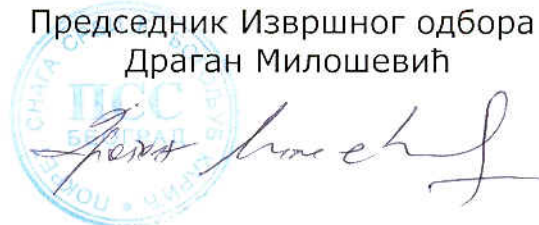 Председник Извршног одбора
Драган Милошевић
ПСС
БЕОГРАД